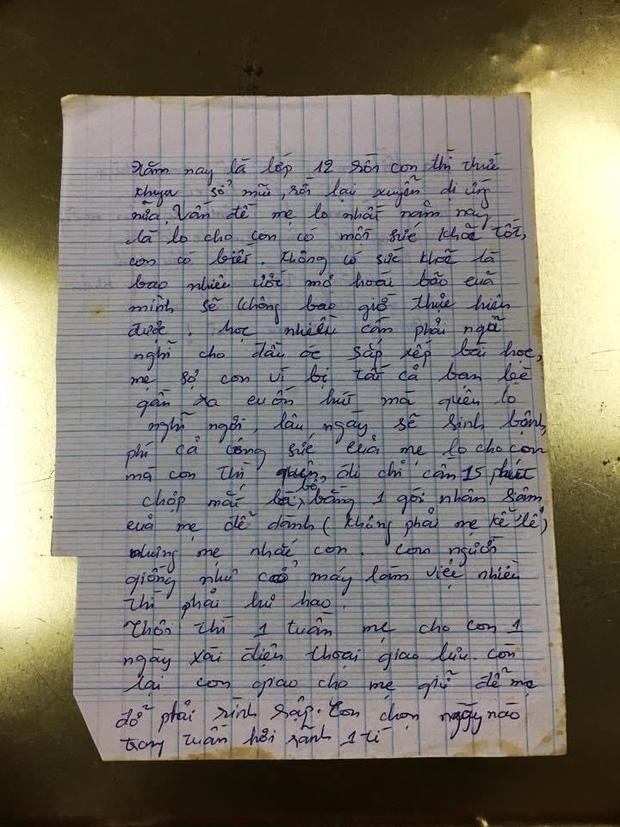 Năm nay là lớp 12 rồi con thì thức
khuya sổ mũi, rồi lại xuyễn dị ứng
nữa, vấn đề mẹ lo nhất năm nay
là lo cho con có một sức khoẻ tốt,
con có biết. Không có sức khoẻ là
bao nhiêu ước mơ hoài bão của
mình sẽ không bao giờ thực hiện
được. học nhiều cần phải ngơi
nghỉ cho đầu óc sắp xếp bài học,
mẹ sợ con vì bị tất cả bạn bè
gần xa cuốn hút mà quên lo
nghỉ ngơi, lâu ngày sẽ sinh bệnh,
phí cả công sức của mẹ lo cho con
mà con thì quên đi chỉ cần 15 phút
chớp mắt bổ bằng 1 gói nhân sâm
của mẹ để dành (không phải mẹ kể lể)
nhưng mẹ nhắc con. con người
giống như cổ máy làm việc nhiều
thì phải hư hao.
Thôi thì 1 tuần mẹ cho con 1
ngày xài điện thoại giao lưu. còn
lại con giao cho mẹ giữ để mẹ
đỡ phải rình rập. Con chọn ngày nào
trong tuần hơi rãnh 1 tí